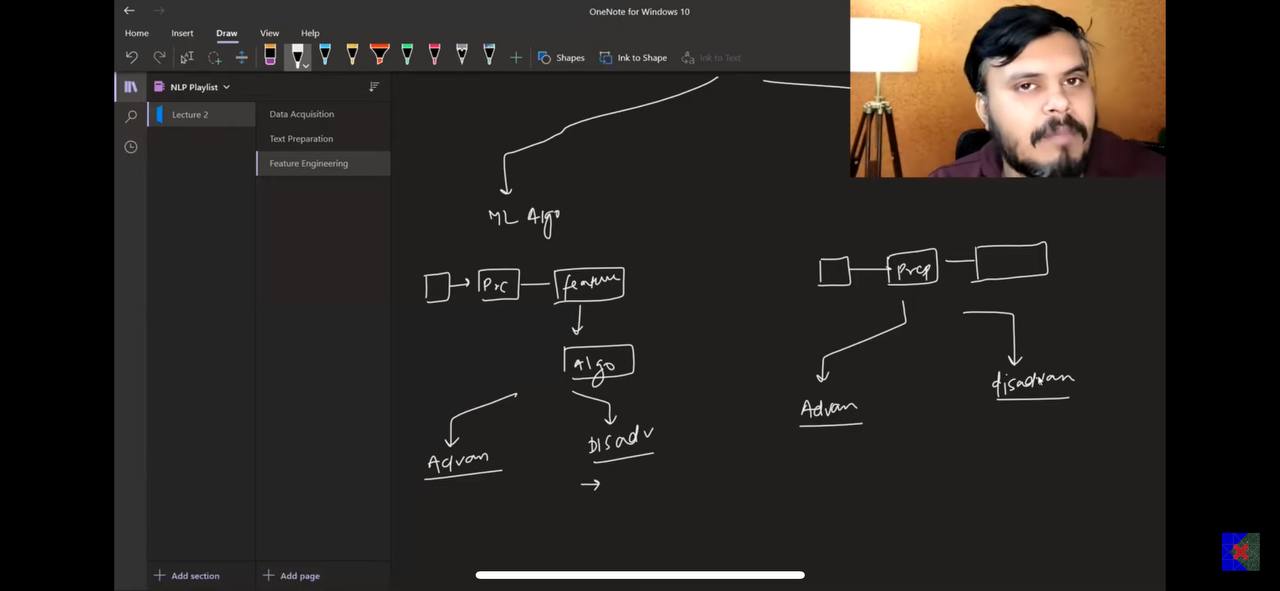 OneNote for Windows 10
Home Insert Draw View Help
Shapes Ink to Shape Ink to Text
NLP Playlist
Lecture 2
Data Acquisition
Text Preparation
Feature Engineering
ML Algo
Prc feature
Algo
Advan Disadv
Prep
Advan disadvan
Add section Add page